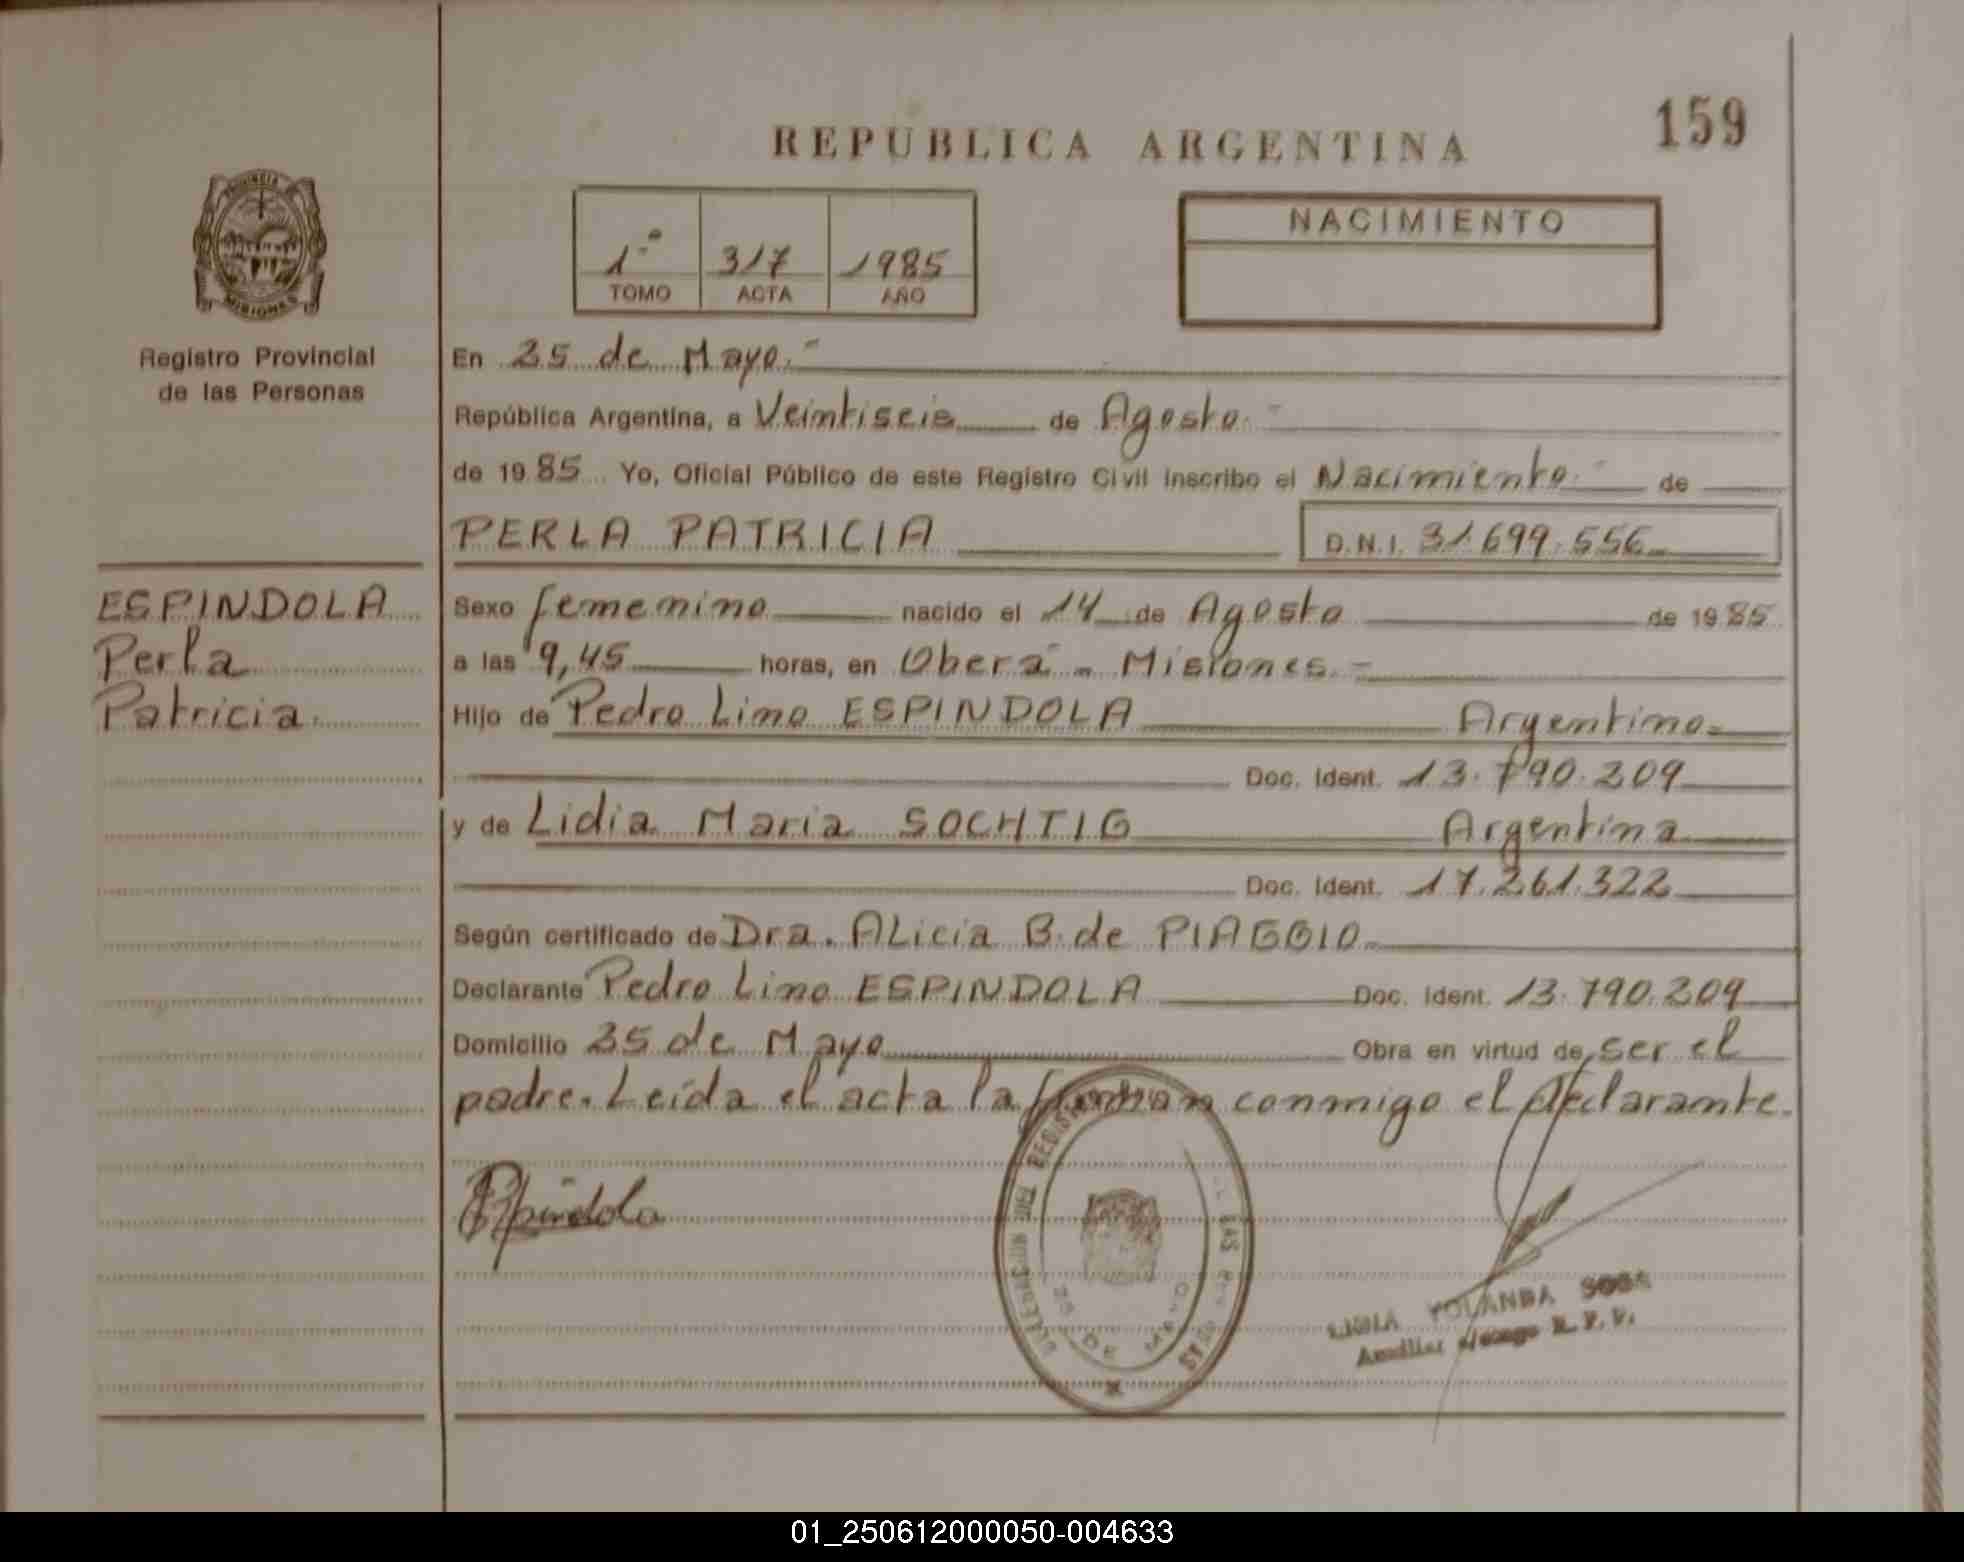 159
REPUBLICA ARGENTINA
PROVINCIA
MISIONES
Registro Provincial
de las Personas
1º 317 1985
TOMO ACTA AÑO
NACIMIENTO
En 25 de Mayo.-
República Argentina, a Veintiseis de Agosto.-
de 1985 Yo, Oficial Público de este Registro Civil inscribo el Nacimiento.- de
PERLA PATRICIA D.N.I. 31.699.556
ESPINDOLA
Perla
Patricia.
Sexo femenino nacido el 14 de Agosto de 1985
a las 9,45 horas, en Oberá - Misiones.-
Hijo de Pedro Lino ESPINDOLA Argentino-
Doc. Ident. 13.790.209
y de Lidia Maria SOCHTIG Argentina
Doc. Ident. 17.261.322
Según certificado de Dra. ALicia B. de PIAGGIO-
Declarante Pedro Lino ESPINDOLA Doc. Ident. 13.790.209
Domicilio 25 de Mayo Obra en virtud de ser el
padre. Leída el acta la firman conmigo el declarante.
Espindola
25 DE MAYO
YOLANDA SOSA
Auxiliar R. P. P.
01_250612000050-004633